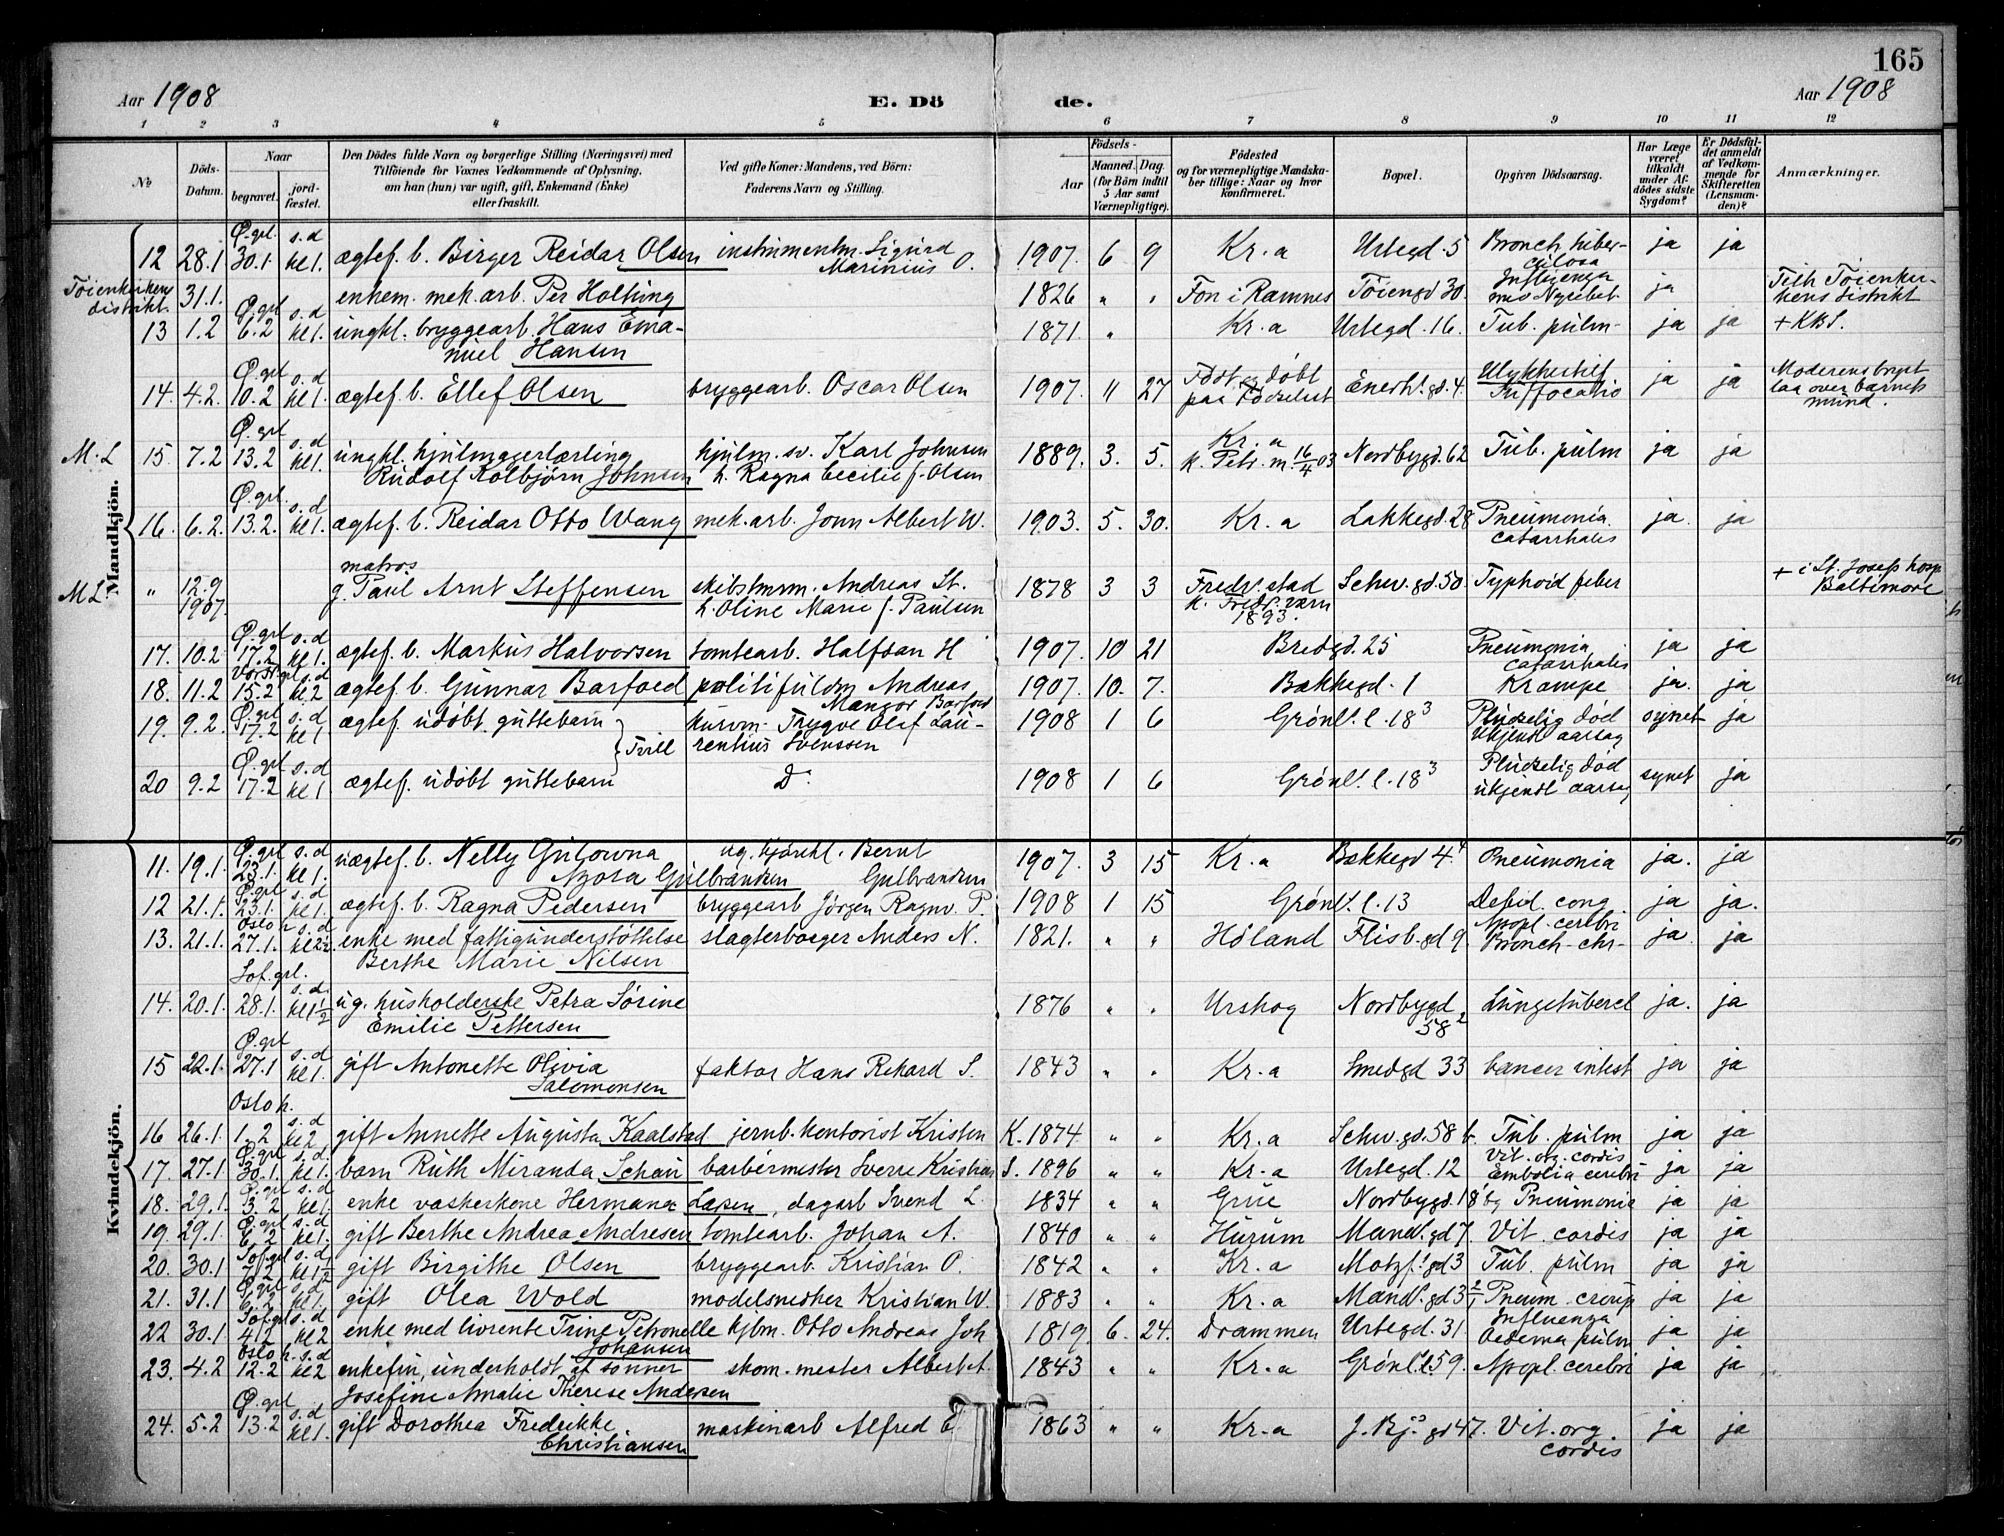 165
Aar 1908 E. Dö de. Aar 1908
1 2 3 4 5 6 7 8 9 10 11 12
No
Döds-Datum.
Naar
begravet.
jord-fæstet.
Den Dödes fulde Navn og borgerlige Stilling (Næringsvei) med
Tilföiende for Voxnes Vedkommende af Oplysning,
om han (hun) var ugift, gift, Enkemand (Enke)
eller fraskilt.
Ved gifte Koner: Mandens, ved Börn:
Faderens Navn og Stilling.
Födsels-
Aar
Maaned. Dag.
(for Börn indtil
5 Aar samt
Værnepligtige).
Födested
og for værnepligtige Mandska-
ber tillige: Naar og hvor
konfirmeret.
Bopæl.
Opgiven Dödsaarsag.
Har Læge
været
tilkaldt
under Af-
dödes sidste
Sygdom?
Er Dödsfal-
det anmeldt
af Vedkom-
mende for
Skifteretten
(Lensman-
den)?
Anmærkninger.
Mandkjön.
12 28.1 Ø.grl. 30.1. s.d kl 1. ægtef. b. Birger Reidar Olsen instrumentm. Sigurd Marinius O. 1907. 6 9 Kr.a Urtegd. 5 Bronch. tuberculosa ja ja
Töienkirkens distrikt. 31.1. enkem. mek. arb. Per Holtung 1826 " " Fon i Ramnes Töiengd 30. Influenza ja Tilh Töienkirkens distrikt
13 1.2 Ø.grl 6.2 s.d kl 1. ungkl. bryggearb. Hans Emanuel Hansen 1871. " Kr.a Urtegd. 16. Tub. pulm. ja ja + KBS.
14. 4.2. Ø.grl 10.2 s.d kl 1. ægtef. b. Ellef Olsen bryggearb. Oscar Olsen 1907. 11 27 Födt og døbt paa Födselsst Enerh. gd. 4. Ulykkestilf Suffocatio ja ja Moderens bryst laa over barnets mund.
M.L 15. 7.2 Ø.grl 13.2 s.d kl 1. ungkl. hjulmagerlærling Rudolf Kolbjørn Johnsen hjulm. sv. Karl Johnsen h. Ragna Cecilie f. Olsen 1889. 3. 5. Kr.a k. Petr. m. 16/4 03 Nordbygd. 62 Tub. pulm ja ja
16. 6.2. Ø.grl. 13.2. s.d kl 1. ægtef. b. Reidar Otto Wang mek. arb. John Albert W. 1903. 5. 30. Kr.a Lakkegd. 28 Pneumonia catarrhalis ja. ja
M.L. " 12.9. 1907. matros g. Paul Arnt Steffensen skibstmm. Andreas St. h. Oline Marie f. Paulsen 1878 3 3 Fredr.stad k. Fredr.værn 1893. Schw. gd. 50 Typhoid feber + i St. Josefs hosp Baltimore
17. 10.2 Ø.grl 17.2 s.d kl 1. ægtef. b. Markus Halvorsen tomtearb. Halfdan H 1907. 10 21 Bredgd. 25 Pneumonia catarrhalis ja ja
18. 11.2 15.2 s.d kl 2 ægtef. b. Gunnar Barfoed politifuldm Andreas 1907. 10. 7. Bakkegd. 1 Krampe ja. ja
19. 9.2. Ø.grl 17.2 s.d kl 1 ægtef. udøbt guttebarn Tvill Trygve Olaf Laurentius Svenssen 1908 1 6 Grønl. l. 18³ Pludselig död ukjendt aarsag synet ja
20 9.2 Ø.grl 17.2 s.d kl 1 ægtef. udøbt guttebarn D: 1908 1 6 Grønl. l. 18³ Pludselig död ukjendt aarsag synet ja
Kvindekjön.
11. 19.1. Ø.grl 23.1. s.d kl 1. uægtef. b. Nelly Gulbrandsen ug. Bernt Gulbrandsen 1907. 3 15 Kr.a Bakkegd 4. Pneumonia ja. ja
12 21.1. Ø.grl 23.1. s.d kl 1. ægtef. b. Ragna Pedersen bryggearb Jørgen Ragnv. P. 1908 1 15 Grønl. l. 13 Debil. cong ja ja.
13. 21.1. Oslo h 27.1. s.d kl 2½ enke med fattigunderstøttelse Berthe Marie Nilsen slagterborger Anders N. 1821. " " Höland Flisb. gd 9. Apopl. cerebri Bronch. chr. ja. ja
14. 20.1. Sof.grl. 28.1. s.d. kl 1½ ug. husholderske Petra Sørine Emilie Pettersen 1876 " " Urskog Nordbygd 58² Lungetubercl ja. ja
15 22.1. Ø.grl 27.1 s.d kl 1. gift Antonette Olivia Salomonsen faktor Hans Rikard S. 1843 " " Kr.a Smedgd 33 Cancer intest ja ja
16 26.1. Oslo h. 1.2 s.d kl 2 gift Annette Augusta Kaalstad jernb. kontorist Kristen K. 1874 " " Kr.a Schw. gd. 58 b. Tub. pulm ja ja
17. 27.1. Ø.grl 30.1. s.d. kl 1. barn Ruth Miranda Schau barbérmester Sverre Kristian S. 1896 " " Kr.a Urtegd. 12 Vit. org. cordis Embolia cerebri ja ja
18. 29.1. Ø.grl 3.2 s.d kl 1. enke vaskerkone Hermana Larsen, dagarb Svend L. 1834 " " Grue Nordbygd. 18 bg Pneumonia ja ja
19. 29.1. Ø.grl 6.2 s.d kl 1. gift Berthe Andrea Andresen tomtearb. Johan A. 1840 " " Hurum Mand. gd 7. Vit. cordis ja ja
20. 30.1 Sof.grl 7.2 s.d kl 1½ gift Birgithe Olsen bryggearb. Kristian O. 1842 " " Kr.a Motzf. gd 3 Tub. pulm ja ja
21. 31.1 Ø.grl 6.2 s.d kl 1. gift Olea Wold modelsnedker Kristian W. 1883 " " Kr.a Mand. gd 3 Pneum. croup ja ja
22 30.1 Sof.grl 4.2 s.d kl 2 enke med livrente Trine Petronelle Johansen kjbm. Otto Andreas Joh 1819 6. 24. Drammen Urtegd. 31 Influenza Oedema pulm ja ja
23. 4.2 Oslo h. 12.2 s.d kl 2 enkefru, underholdt af sønner Josefine Amalie Therese Andersen skom. mester Albert A. 1843 " " Kr.a Grønl. l. 59. Apopl. cerebri ja ja
24. 5.2 Ø.grl 13.2 s.d kl 1. gift Dorothea Fredrikke Christiansen maskinarb Alfred C 1863 " " Kr.a J. Bj. gd 47. Vit. org. cordis ja ja